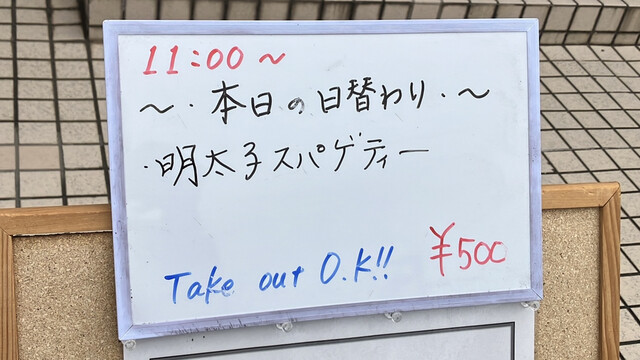 11:00～
～・本日の日替わり・～
・明太子スパゲティー
¥500
Take out O.K!!